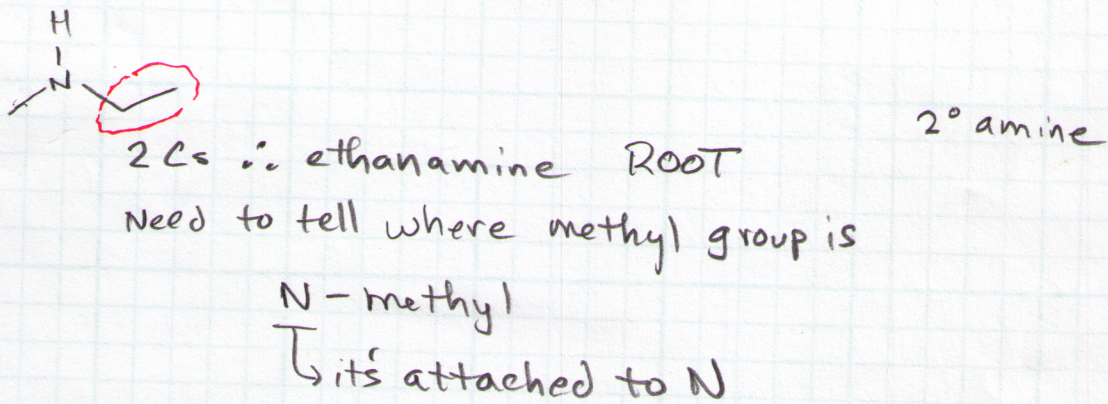 H
N
2° amine
2 Cs ∴ ethanamine ROOT
Need to tell where methyl group is
N - methyl
↳ it's attached to N